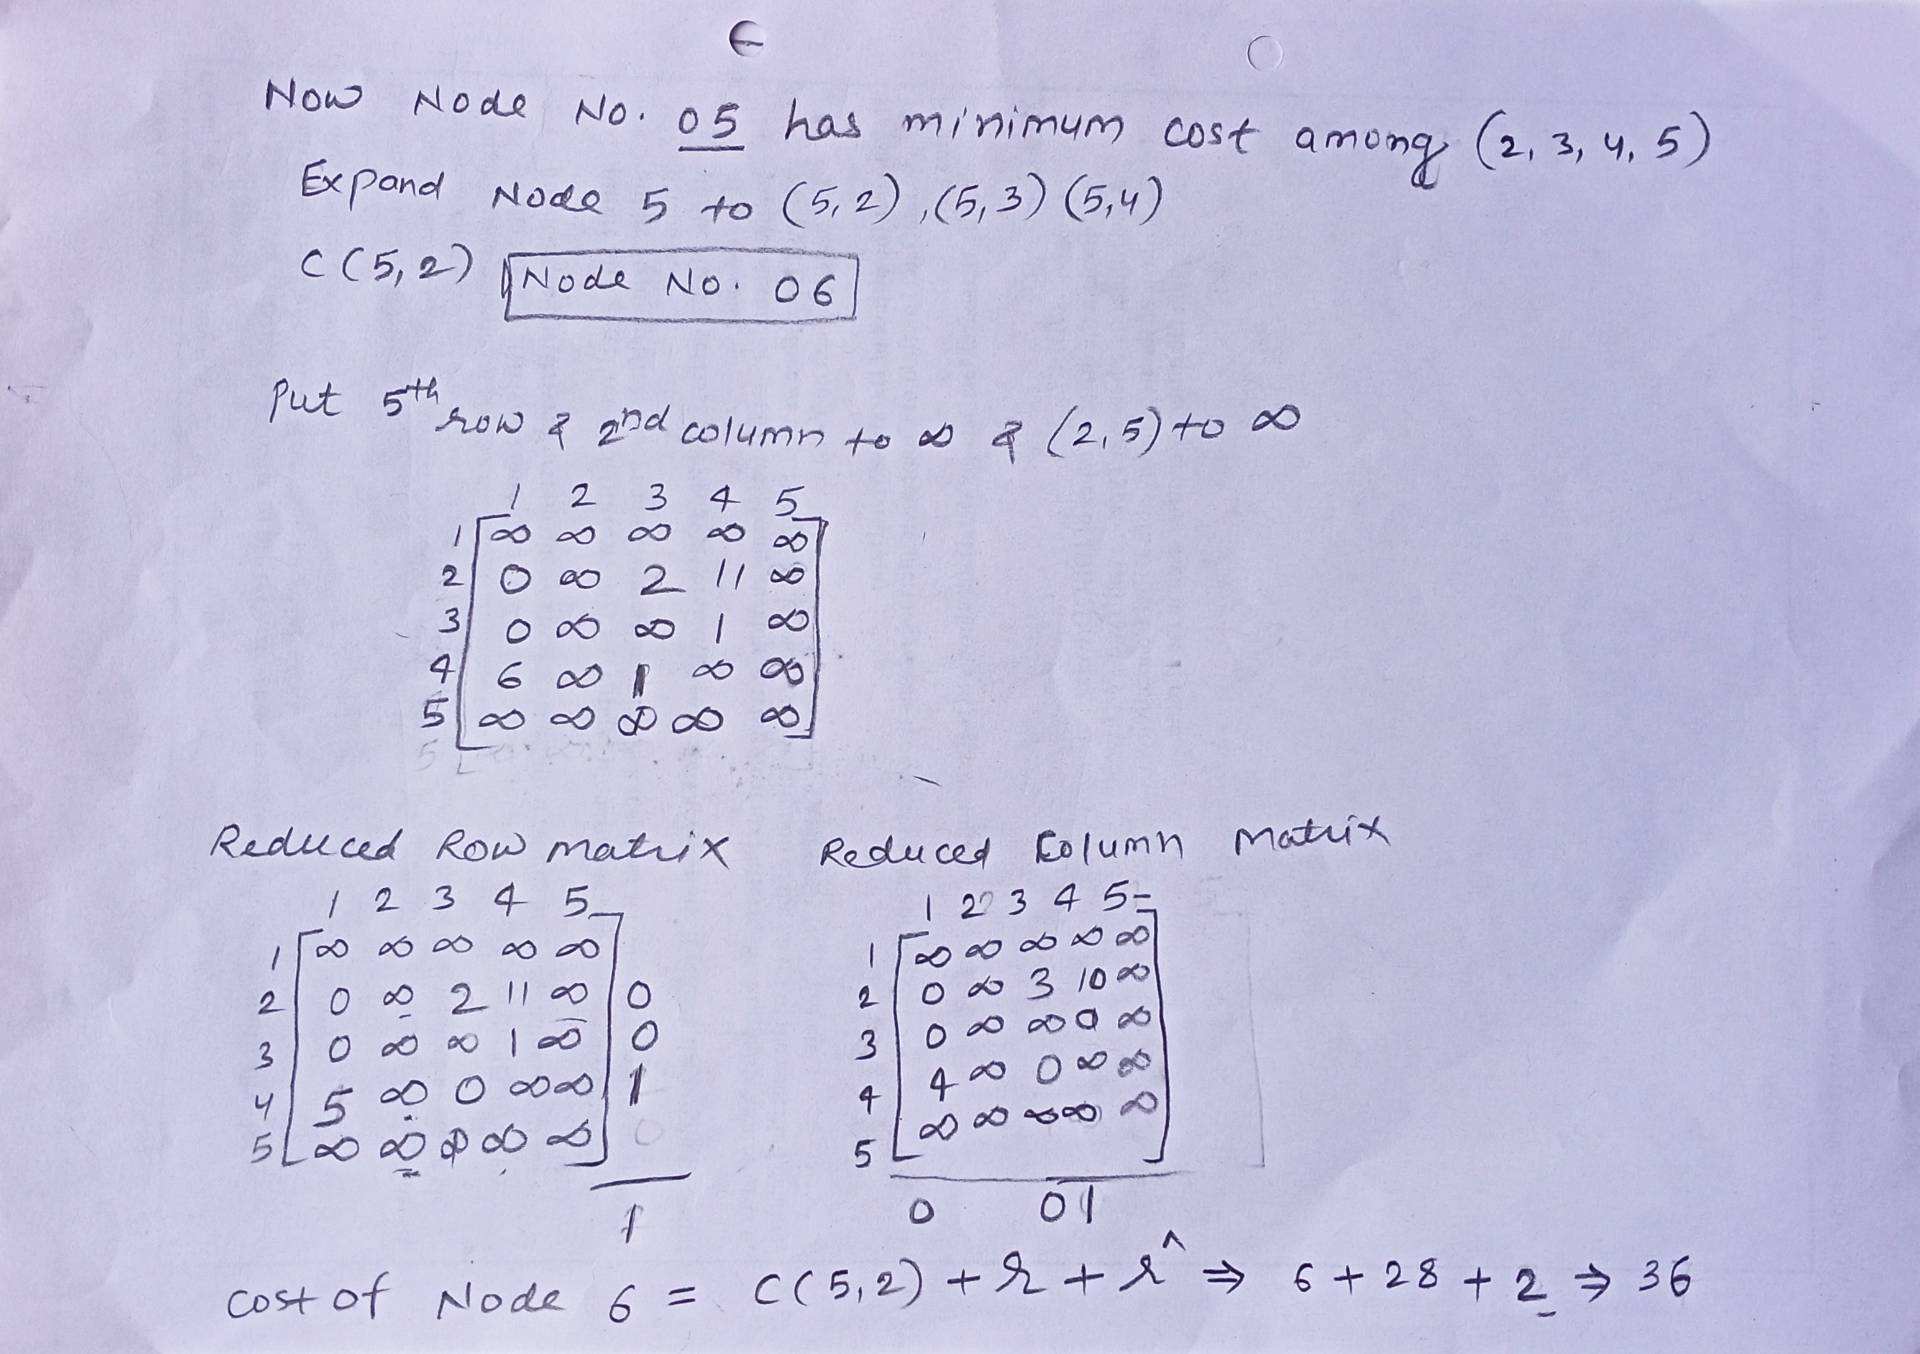 Now Node No. 05 has minimum cost among (2, 3, 4, 5)
Expand Node 5 to (5,2), (5,3) (5,4)
C(5,2) Node No. 06
Put 5th row & 2nd column to ∞ & (2,5) to ∞
1 2 3 4 5
1 ∞ ∞ ∞ ∞ ∞
2 0 ∞ 2 11 ∞
3 0 ∞ ∞ 1 ∞
4 6 ∞ 1 ∞ ∞
5 ∞ ∞ ∞ ∞ ∞
Reduced Row matrix
1 2 3 4 5
1 ∞ ∞ ∞ ∞ ∞
2 0 ∞ 2 11 ∞ 0
3 0 ∞ ∞ 1 ∞ 0
4 5 ∞ 0 ∞ ∞ 1
5 ∞ ∞ ∞ ∞ ∞ 0
1
Reduced Column Matrix
1 2 3 4 5
1 ∞ ∞ ∞ ∞ ∞
2 0 ∞ 3 10 ∞
3 0 ∞ ∞ 0 ∞
4 4 ∞ 0 ∞ ∞
5 ∞ ∞ ∞ ∞ ∞
0 0 1
Cost of Node 6 = C(5,2) + r + r^ ⇒ 6 + 28 + 2 ⇒ 36